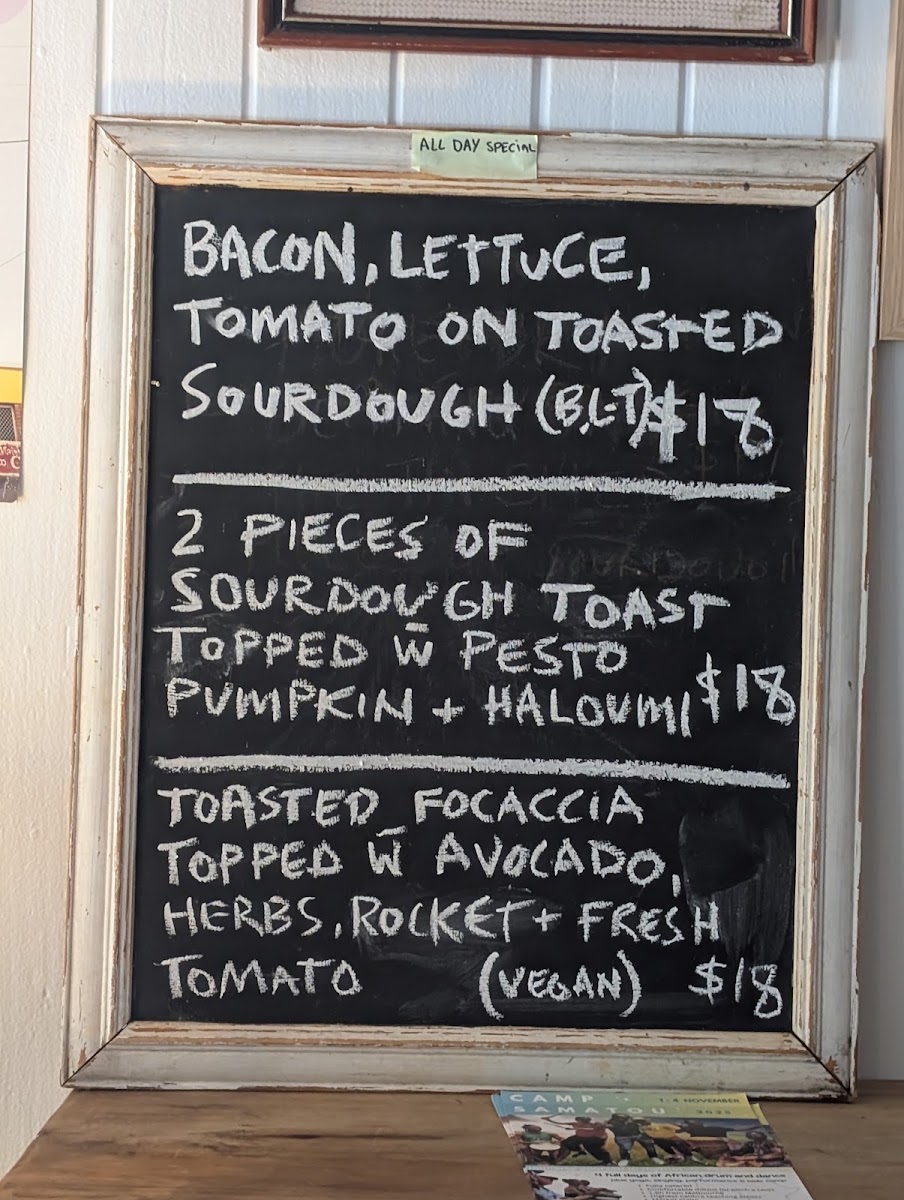 ALL DAY SPECIAL
BACON, LETTUCE,
TOMATO ON TOASTED
SOURDOUGH (B,L-T) $18
2 PIECES OF
SOURDOUGH TOAST
TOPPED W̄ PESTO
PUMPKIN + HALOUMI $18
TOASTED FOCACCIA
TOPPED W̄ AVOCADO,
HERBS, ROCKET + FRESH
TOMATO (VEGAN) $18
CAMP • 1-4 NOVEMBER
SAMATOU
4 full days of African drum and dance